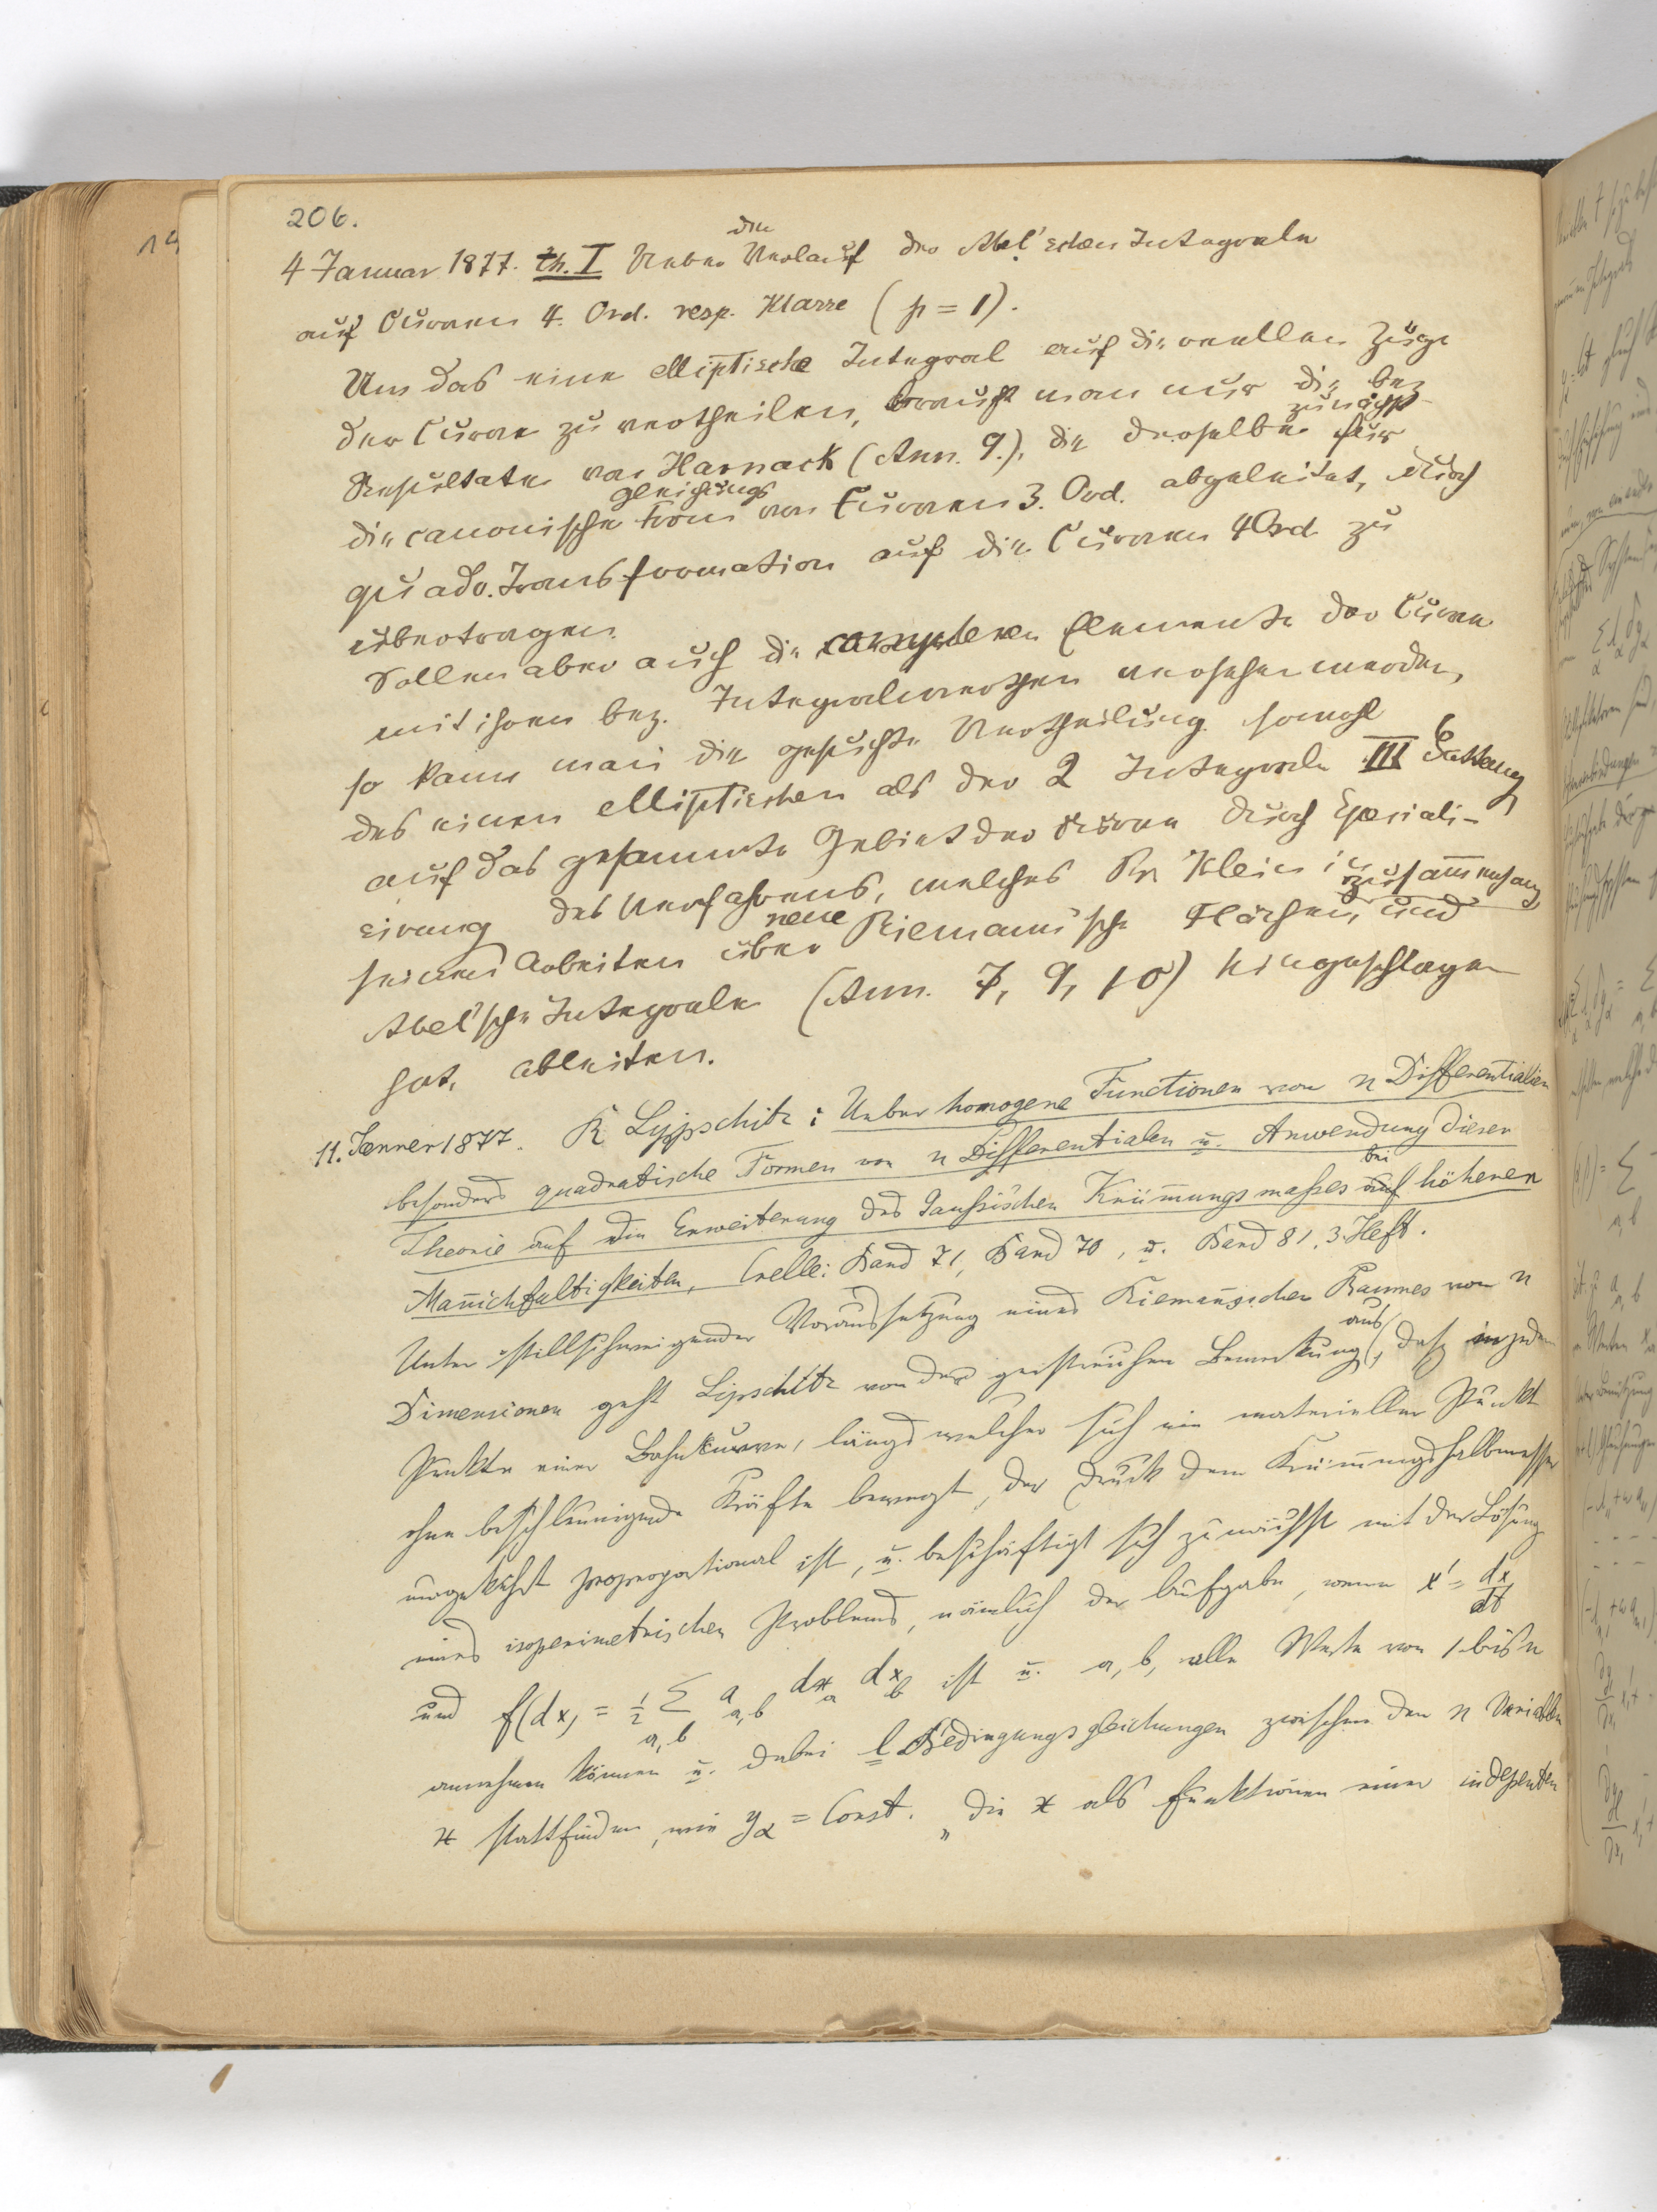 206.
4 Januar 1877. th. I Ueber den Verlauf der Abel'schen Integrale
auf Curven 4. Ord. resp. Klasse (p = 1).
Um das eine elliptische Integral auf die reellen Züge
der Curve zu vertheilen, braucht man nur die bez
Resultate von Harnack (Ann. 9.), die derselbe zunächst für
die canonische Gleichungsform von Curven 3. Ord. abgeleitet, durch
quadr. Transformation auf die Curven 4 Ord. zu
übertragen.
Sollen aber auch die complexen Elemente der Curve
mit ihren bez. Integralwerthen versehen werden,
so kann man die gesuchte Vertheilung sowohl
des einen elliptischen als der 2 Integrale III Gattung
auf das gesammte Gebiet der Curve durch Speciali-
sirung des Verfahrens, welches Pr. Klein in
seinen Arbeiten über neue Riemann'sche Flächen, und Zusammenhang
Abel'sche Integrale (Ann. 7, 9, 10) eingeschlagen
hat, ableiten.
11. Jenner 1877. R Lypschitz: Ueber homogene Functionen von n Differentialien
besonders quadratische Formen von n Differentialen u. Anwendung dieser
Theorie auf die Erweiterung des Gaussischen Krümungsmasses auf bei höheren
Manichfaltigkeiten, Crelle: Band 71, Band 70, u. Band 81, 3. Heft.
Unter stillschweigender Voraussetzung eines Riemannischen Raumes von n
Dimensionen geht Lipschitz von der geistreichen Bemerkung aus, daß in jedem
Punkte einer Bahnkurve, längs welcher sich ein materieller Punkt
ohne beschleunigende Kräfte bewegt, der Druck dem Krümungshalbmesser
umgekehrt proportional ist, u. beschäftigt sich zunächst mit der Lösung
eines isoperimetrischen Problems, nämlich der Aufgabe, wenn x' = dx/dt
und f(dx) = 1/2 Σ a_{a,b} dx_a dx_b ist u. a, b, alle Werte von 1 bis n
a, b
annehmen können u. dabei l Bedingungsgleichungen zwischen den n Variablen
x stattfinden, wie y_α = Const. „die x als Funktionen einer indepenten